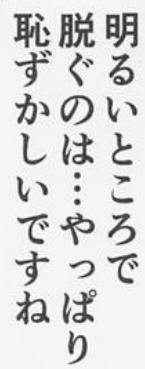 明るいところで
脱ぐのは…やっぱり
恥ずかしいですね